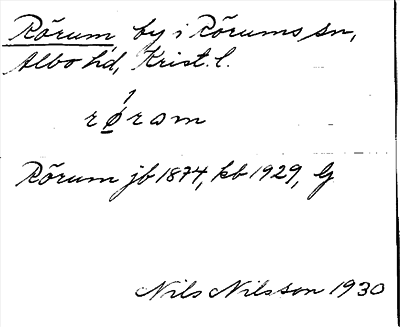 Rörum by i Rörums sn,
Albo hd, Krist. l.
rǿ̱rom
Rörum jb 1874, kb 1929, G
Nils Nilsson 1930